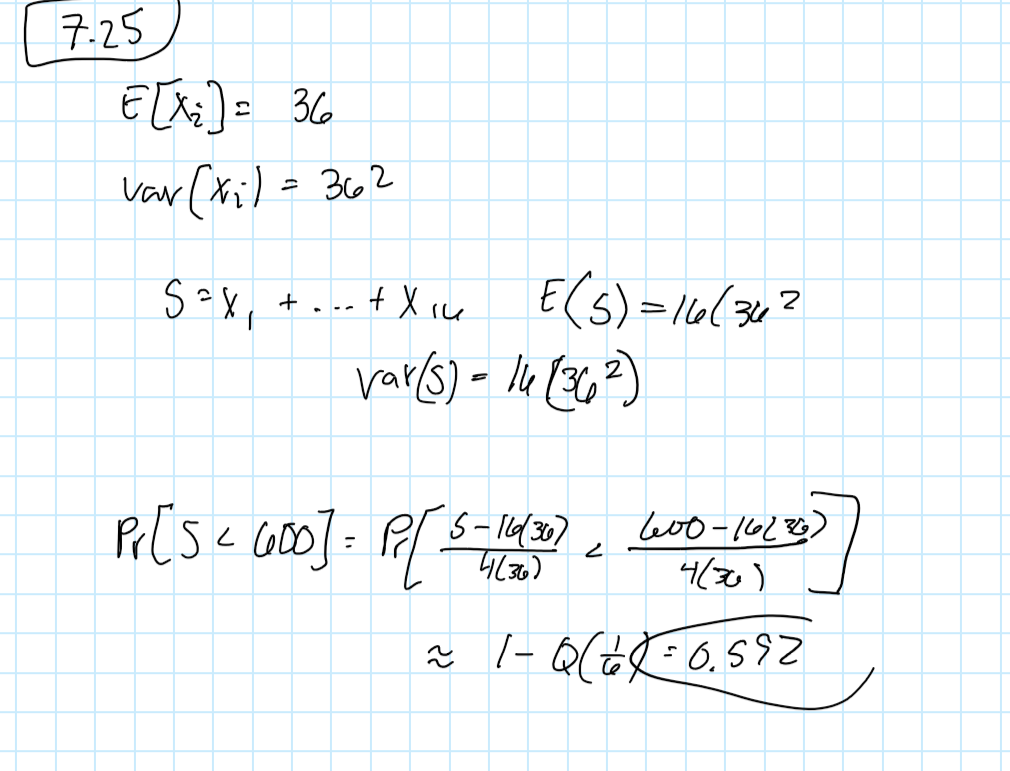 7.25
E[Xi] = 36
var(Xi) = 36²
S = X₁ + ... + X₁₆ E(S) = 16(36²
var(S) = 16(36²)
Pr[S < 600] = Pr[ (S-16(36))/(4(36)) < (600-16(36))/(4(36)) ]
≈ 1 - Q(1/6) = 0.592